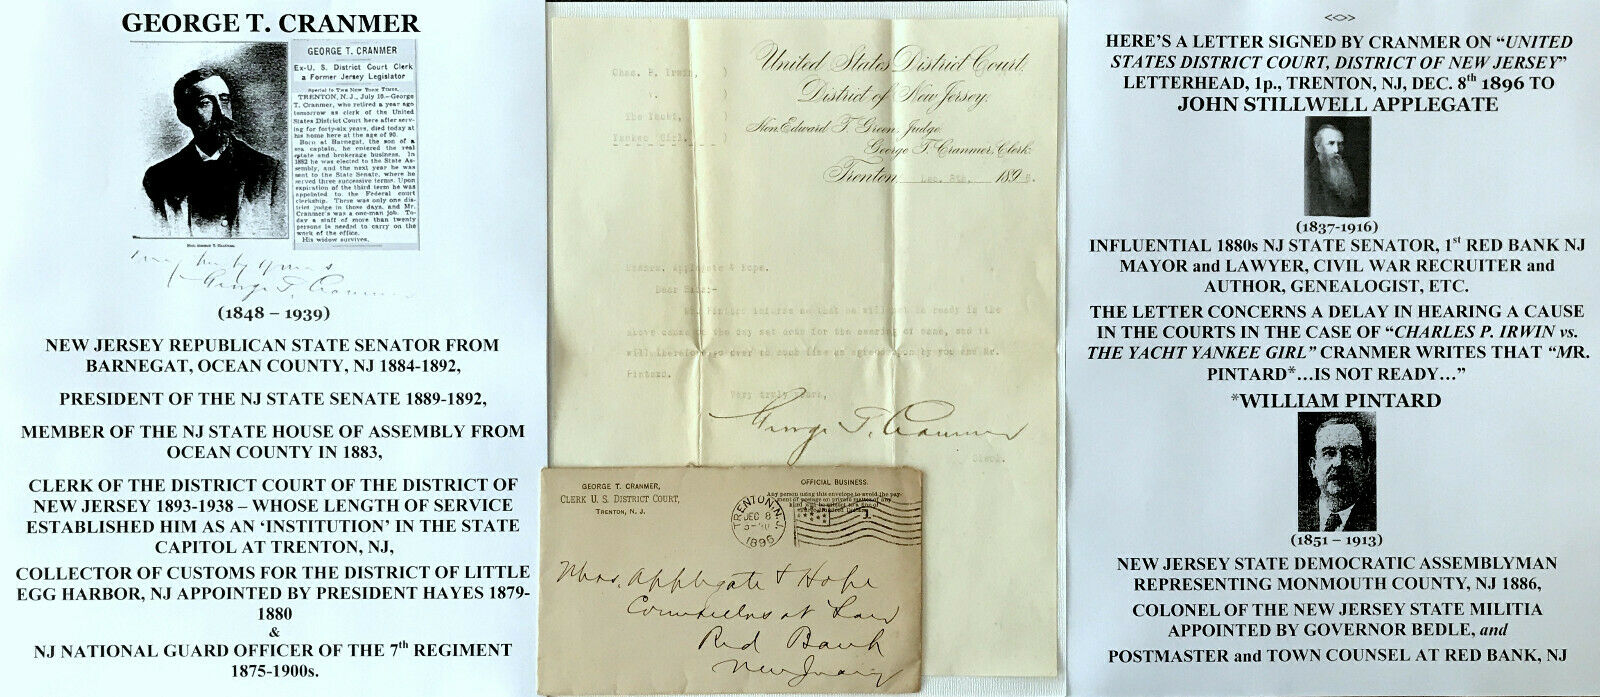 GEORGE T. CRANMER
GEORGE T. CRANMER
Ex-U. S. District Court Clerk
a Former Jersey Legislator
Special to THE NEW YORK TIMES.
TRENTON, N. J., July 10.—George
T. Cranmer, who retired a year ago
tomorrow as clerk of the United
States District Court here after serv-
ing for forty-six years, died today at
his home here at the age of 90.
Born at Barnegat, the son of a
sea captain, he entered the real
estate and brokerage business. In
1882 he was elected to the State As-
sembly, and the next year he was
sent to the State Senate, where he
served three successive terms. Upon
expiration of the third term he was
appointed to the Federal court
clerkship. There was only one dis-
trict judge in those days, and Mr.
Cranmer's was a one-man job. To-
day a staff of more than twenty
persons is needed to carry on the
work of the office.
His widow survives.
George T. Cranmer
(1848 – 1939)
NEW JERSEY REPUBLICAN STATE SENATOR FROM
BARNEGAT, OCEAN COUNTY, NJ 1884-1892,
PRESIDENT OF THE NJ STATE SENATE 1889-1892,
MEMBER OF THE NJ STATE HOUSE OF ASSEMBLY FROM
OCEAN COUNTY IN 1883,
CLERK OF THE DISTRICT COURT OF THE DISTRICT OF
NEW JERSEY 1893-1938 – WHOSE LENGTH OF SERVICE
ESTABLISHED HIM AS AN ‘INSTITUTION’ IN THE STATE
CAPITOL AT TRENTON, NJ,
COLLECTOR OF CUSTOMS FOR THE DISTRICT OF LITTLE
EGG HARBOR, NJ APPOINTED BY PRESIDENT HAYES 1879-
1880
&
NJ NATIONAL GUARD OFFICER OF THE 7th REGIMENT
1875-1900s.
United States District Court.
District of New Jersey.
Hon. Edward T. Green, Judge.
George T. Cranmer, Clerk.
Trenton Dec. 8th, 1896.
Chas. P. Irwin, )
v. )
The Yacht, )
Yankee Girl. )
Messrs. Applegate & Hope.
Dear Sirs:-
Mr. Pintard informs me that he will not be ready in the
above cause on the day set down for the hearing of same, and it
will therefore go over to such time as agreed upon by you and Mr.
Pintard.
Very truly yours,
George T. Cranmer
Clerk.
GEORGE T. CRANMER,
CLERK U. S. DISTRICT COURT,
TRENTON, N. J.
OFFICIAL BUSINESS.
Any person using this envelope to avoid the pay-
ment of postage on private matter of any
TRENTON, N.J.
DEC 8
1896
Mess. Applegate & Hope
Counsellors at Law
Red Bank
New Jersey
<<>>
HERE’S A LETTER SIGNED BY CRANMER ON “UNITED
STATES DISTRICT COURT, DISTRICT OF NEW JERSEY”
LETTERHEAD, 1p., TRENTON, NJ, DEC. 8th 1896 TO
JOHN STILLWELL APPLEGATE
(1837-1916)
INFLUENTIAL 1880s NJ STATE SENATOR, 1st RED BANK NJ
MAYOR and LAWYER, CIVIL WAR RECRUITER and
AUTHOR, GENEALOGIST, ETC.
THE LETTER CONCERNS A DELAY IN HEARING A CAUSE
IN THE COURTS IN THE CASE OF “CHARLES P. IRWIN vs.
THE YACHT YANKEE GIRL” CRANMER WRITES THAT “MR.
PINTARD*…IS NOT READY…”
*WILLIAM PINTARD
(1851 – 1913)
NEW JERSEY STATE DEMOCRATIC ASSEMBLYMAN
REPRESENTING MONMOUTH COUNTY, NJ 1886,
COLONEL OF THE NEW JERSEY STATE MILITIA
APPOINTED BY GOVERNOR BEDLE, and
POSTMASTER and TOWN COUNSEL AT RED BANK, NJ